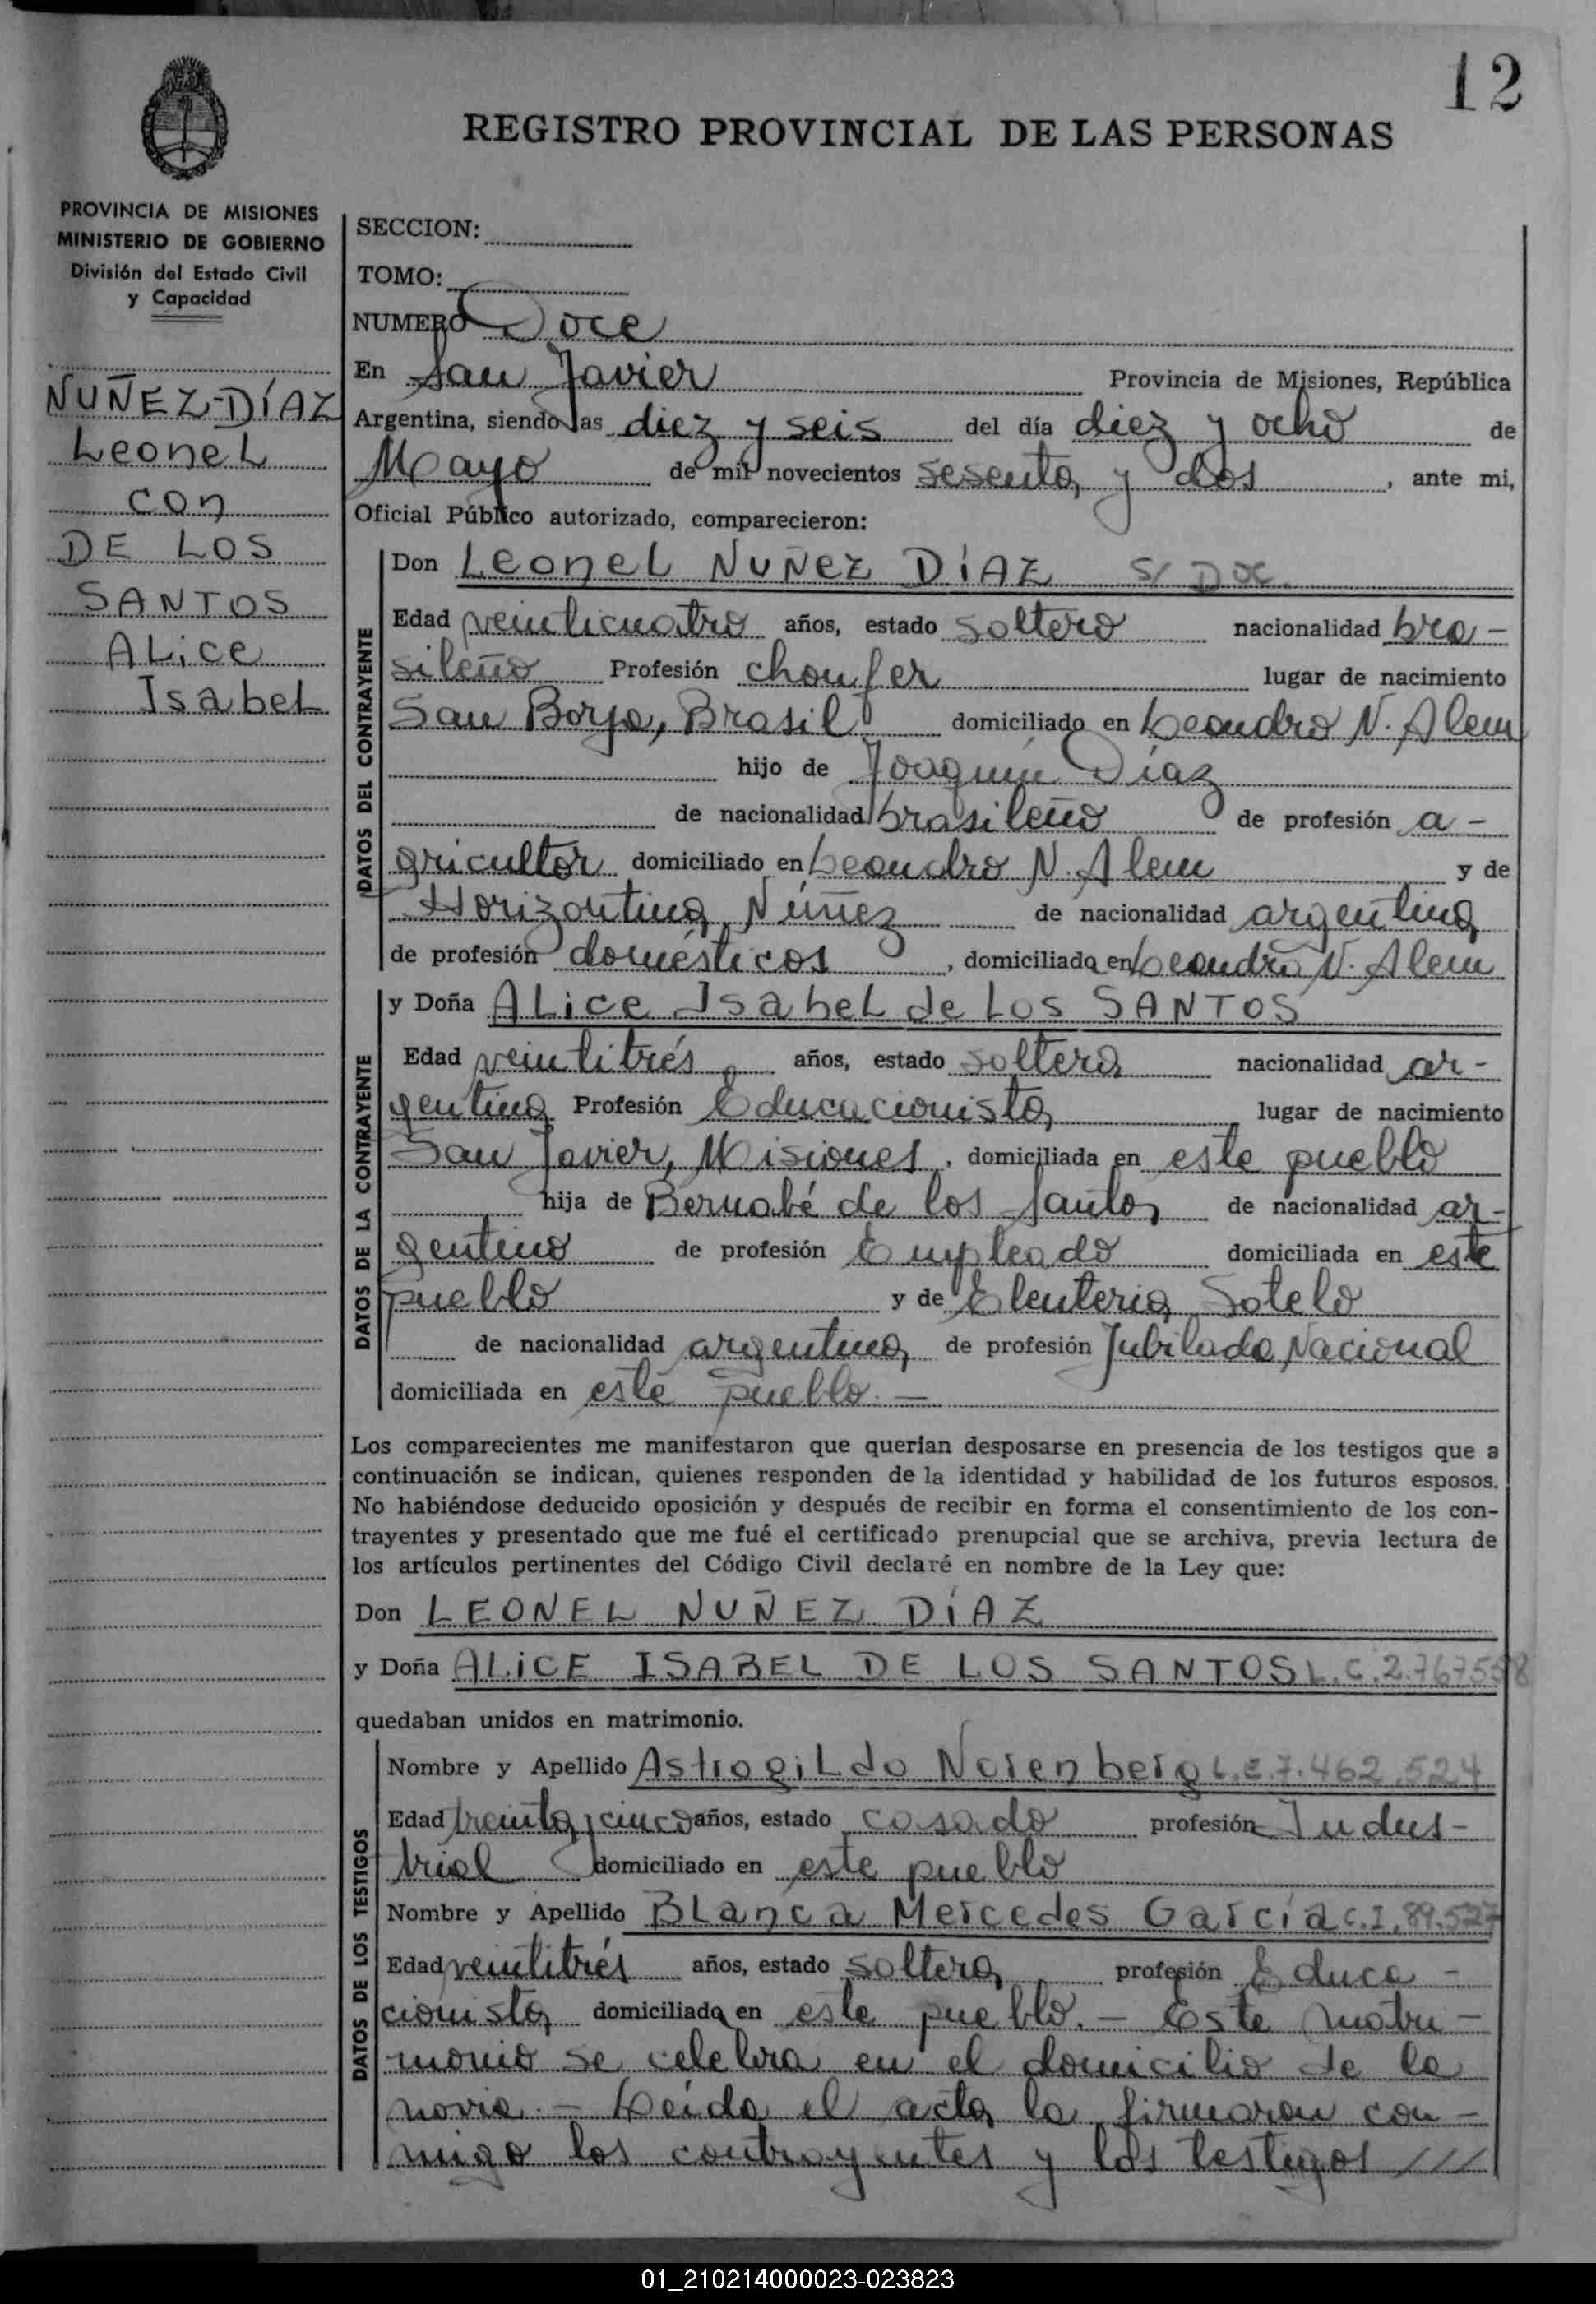 12
REGISTRO PROVINCIAL DE LAS PERSONAS
PROVINCIA DE MISIONES
MINISTERIO DE GOBIERNO
División del Estado Civil
y Capacidad
NUÑEZ-DÍAZ
Leonel
con
DE LOS
SANTOS
ALice
Isabel
SECCION:
TOMO:
NUMERO Doce
En San Javier Provincia de Misiones, República
Argentina, siendo las diez y seis del día diez y ocho de
Mayo de mil novecientos sesenta y dos, ante mi,
Oficial Público autorizado, comparecieron:
DATOS DEL CONTRAYENTE
Don Leonel NUÑEZ DÍAZ S/ Doc.
Edad veinticuatro años, estado soltero nacionalidad bra-
sileño Profesión choufer lugar de nacimiento
San Borja, Brasil domiciliado en Leandro N. Alem
hijo de Joaquín Díaz
de nacionalidad brasileño de profesión a-
gricultor domiciliado en Leandro N. Alem y de
Horizontina Núñez de nacionalidad argentina
de profesión domésticos, domiciliada en Leandro N. Alem
DATOS DE LA CONTRAYENTE
y Doña ALice Isabel de Los SANTOS
Edad veintitrés años, estado soltera nacionalidad ar-
gentina Profesión Educacionista lugar de nacimiento
San Javier, Misiones, domiciliada en este pueblo
hija de Bernabé de los Santos de nacionalidad ar-
gentino de profesión Empleado domiciliada en este
pueblo y de Eleuteria Sotelo
de nacionalidad argentina de profesión Jubilada Nacional
domiciliada en este pueblo.—
Los comparecientes me manifestaron que querían desposarse en presencia de los testigos que a
continuación se indican, quienes responden de la identidad y habilidad de los futuros esposos.
No habiéndose deducido oposición y después de recibir en forma el consentimiento de los con-
trayentes y presentado que me fué el certificado prenupcial que se archiva, previa lectura de
los artículos pertinentes del Código Civil declaré en nombre de la Ley que:
Don LEONEL NUÑEZ DÍAZ
y Doña ALICE ISABEL DE LOS SANTOS L.C.2.767558
quedaban unidos en matrimonio.
DATOS DE LOS TESTIGOS
Nombre y Apellido Astrogildo Norenberg L.E.7.462.524
Edad treinta y cinco años, estado casado profesión Indus-
trial domiciliado en este pueblo
Nombre y Apellido BLanca Mercedes García C.I.
Edad veintitrés años, estado soltera profesión Educa-
cionista domiciliada en este pueblo.— Este matri-
monio se celebra en el domicilio de la
novia.— Leída el acta la firmaron con-
migo los contrayentes y los testigos ///
01_210214000023-023823